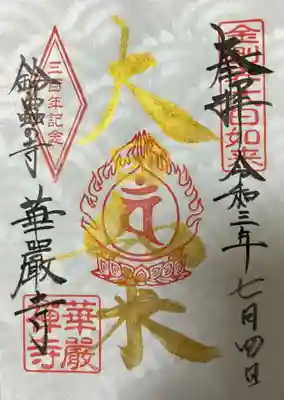 金剛界大日如来
奉拝 令和三年七月四日
大日如来
三百年記念
鈴蟲の寺 華嚴寺
華嚴禪寺